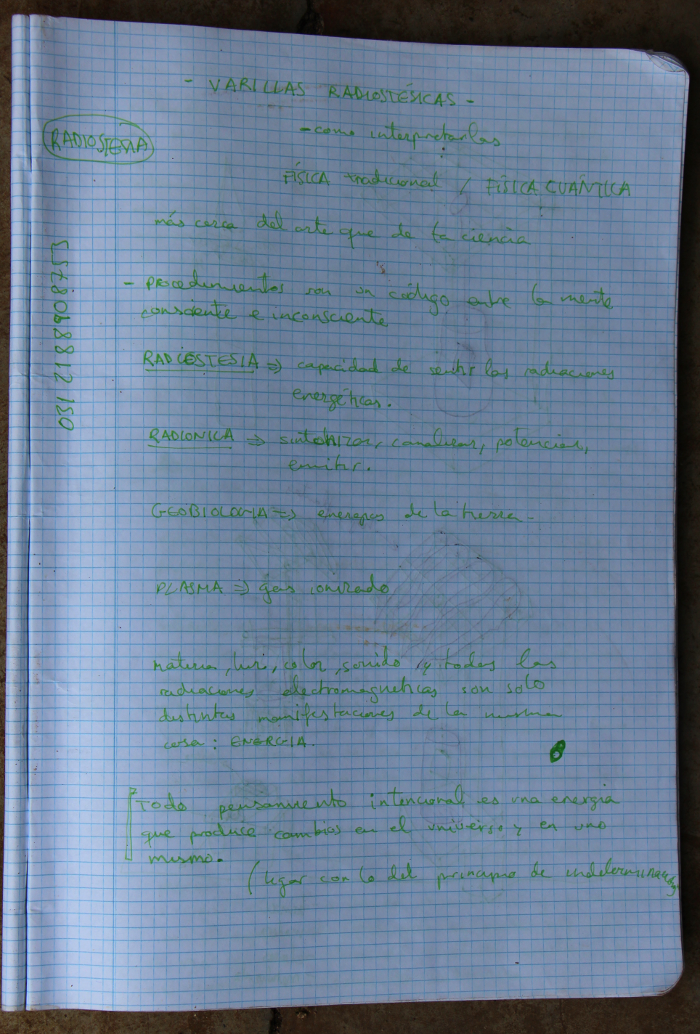 - VARILLAS RADIOSTÉSICAS -
- como interpretarlas
RADIOSTESIA
FÍSICA tradicional / FÍSICA CUÁNTICA
más cerca del arte que de la ciencia
- procedimientos son un código entre la mente
consciente e inconsciente
RADIESTESIA => capacidad de sentir las radiaciones
energéticas.
RADIONICA => sintonizar, canalizar, potenciar,
emitir.
GEOBIOLOGIA => energias de la tierra -
PLASMA => gas ionizado
Materia, luz, color, sonido y todas las
radiaciones electromagneticas son solo
distintas manifestaciones de la misma
cosa: ENERGIA.
Todo pensamiento intencional es una energia
que produce cambios en el universo y en uno
mismo.
(ligar con lo del principio de